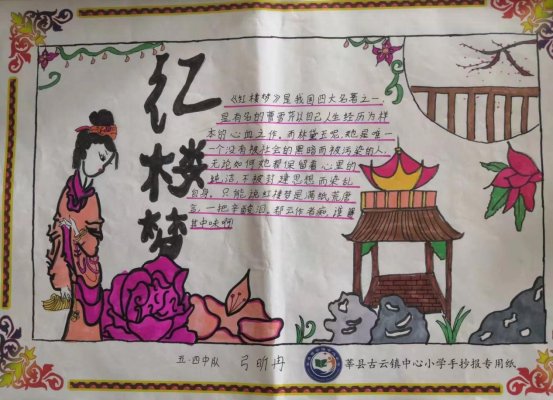 红楼梦
《红楼梦》是我国四大名著之一
是有名的曹雪芹以自己人生经历为样
本的心血之作。而林黛玉呢,她是唯一
一个没有被社会的黑暗而被污染的人,
无论如何她都保留着心里的
纯洁,不被封建思想而染乱
自身,只能说红楼梦是满纸荒唐
言,一把辛酸泪,都云作者痴,谁解
其中味啊
五·四中队 弓昕冉
莘县古云镇中心小学手抄报专用纸